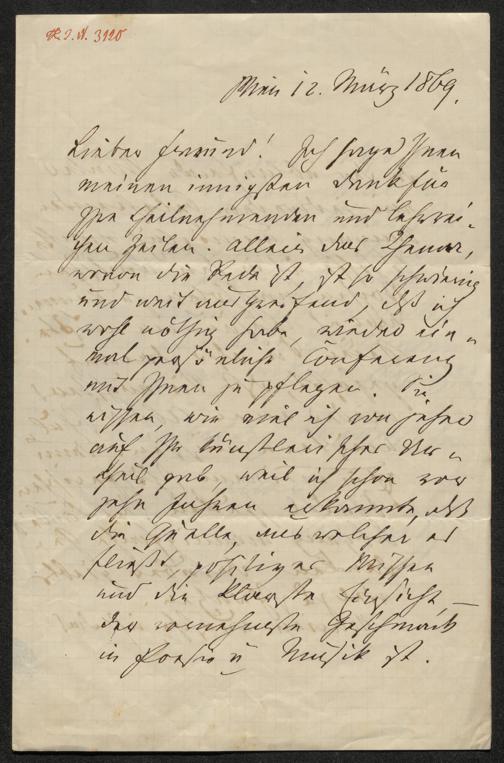 H. I. N. 3120
Wien 12. März 1869.
Lieber Freund! Ich sage Ihnen
meinen innigsten Dank für
Ihre theilnehmenden und lehrrei-
chen Zeilen. Allein das Thema,
wovon die Rede ist, ist so schwierig
und weit ausgreifend, daß ich
wohl nöthig habe, wieder ein-
mal persönliche Conferenz
mit Ihnen zu pflegen. Sie
wissen, wie viel ich von jeher
auf Ihr künstlerisches Ur-
theil gab, weil ich schon vor
zehn Jahren erkannte, daß
die Quelle, aus welcher es
fließt, positives Wissen
und die klarste Einsicht –
der vornehmste Geschmack
in Poesie u Musik ist.